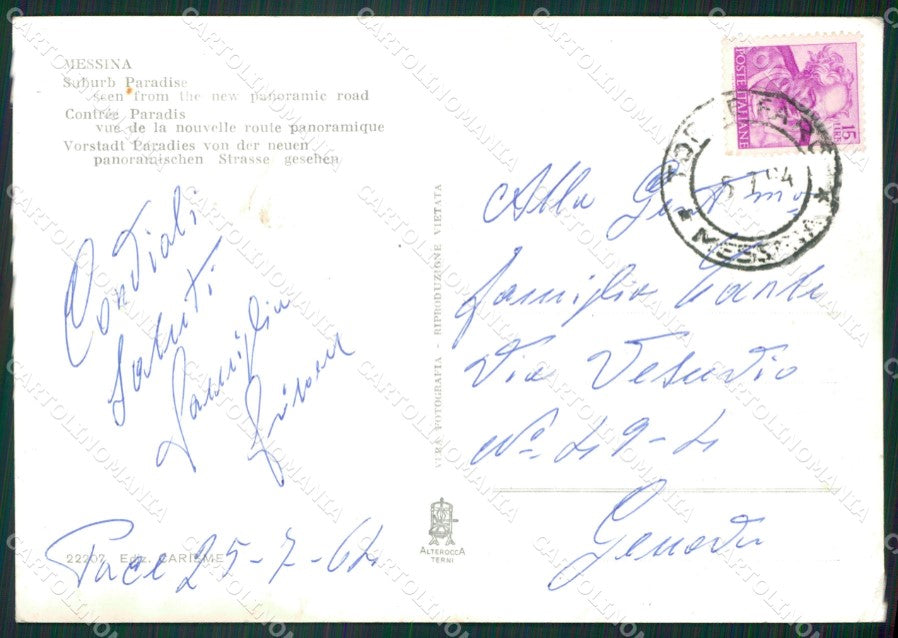 MESSINA
Suburb Paradise
seen from the new panoramic road
Contrée Paradis
vue de la nouvelle route panoramique
Vorstadt Paradies von der neuen
panoramischen Strasse gesehen
Cordiali
saluti
Famiglia
Pace 25-7-64
22207 Ediz. CARIEME
VERA FOTOGRAFIA - RIPRODUZIONE VIETATA
ALTEROCCA
TERNI
POSTE ITALIANE
15
LIRE
TORRE FARO
* MESSINA *
Alla Gent.ma
famiglia
Via Vesuvio
N° 49-4
Genova
CARTOLINOMANIA